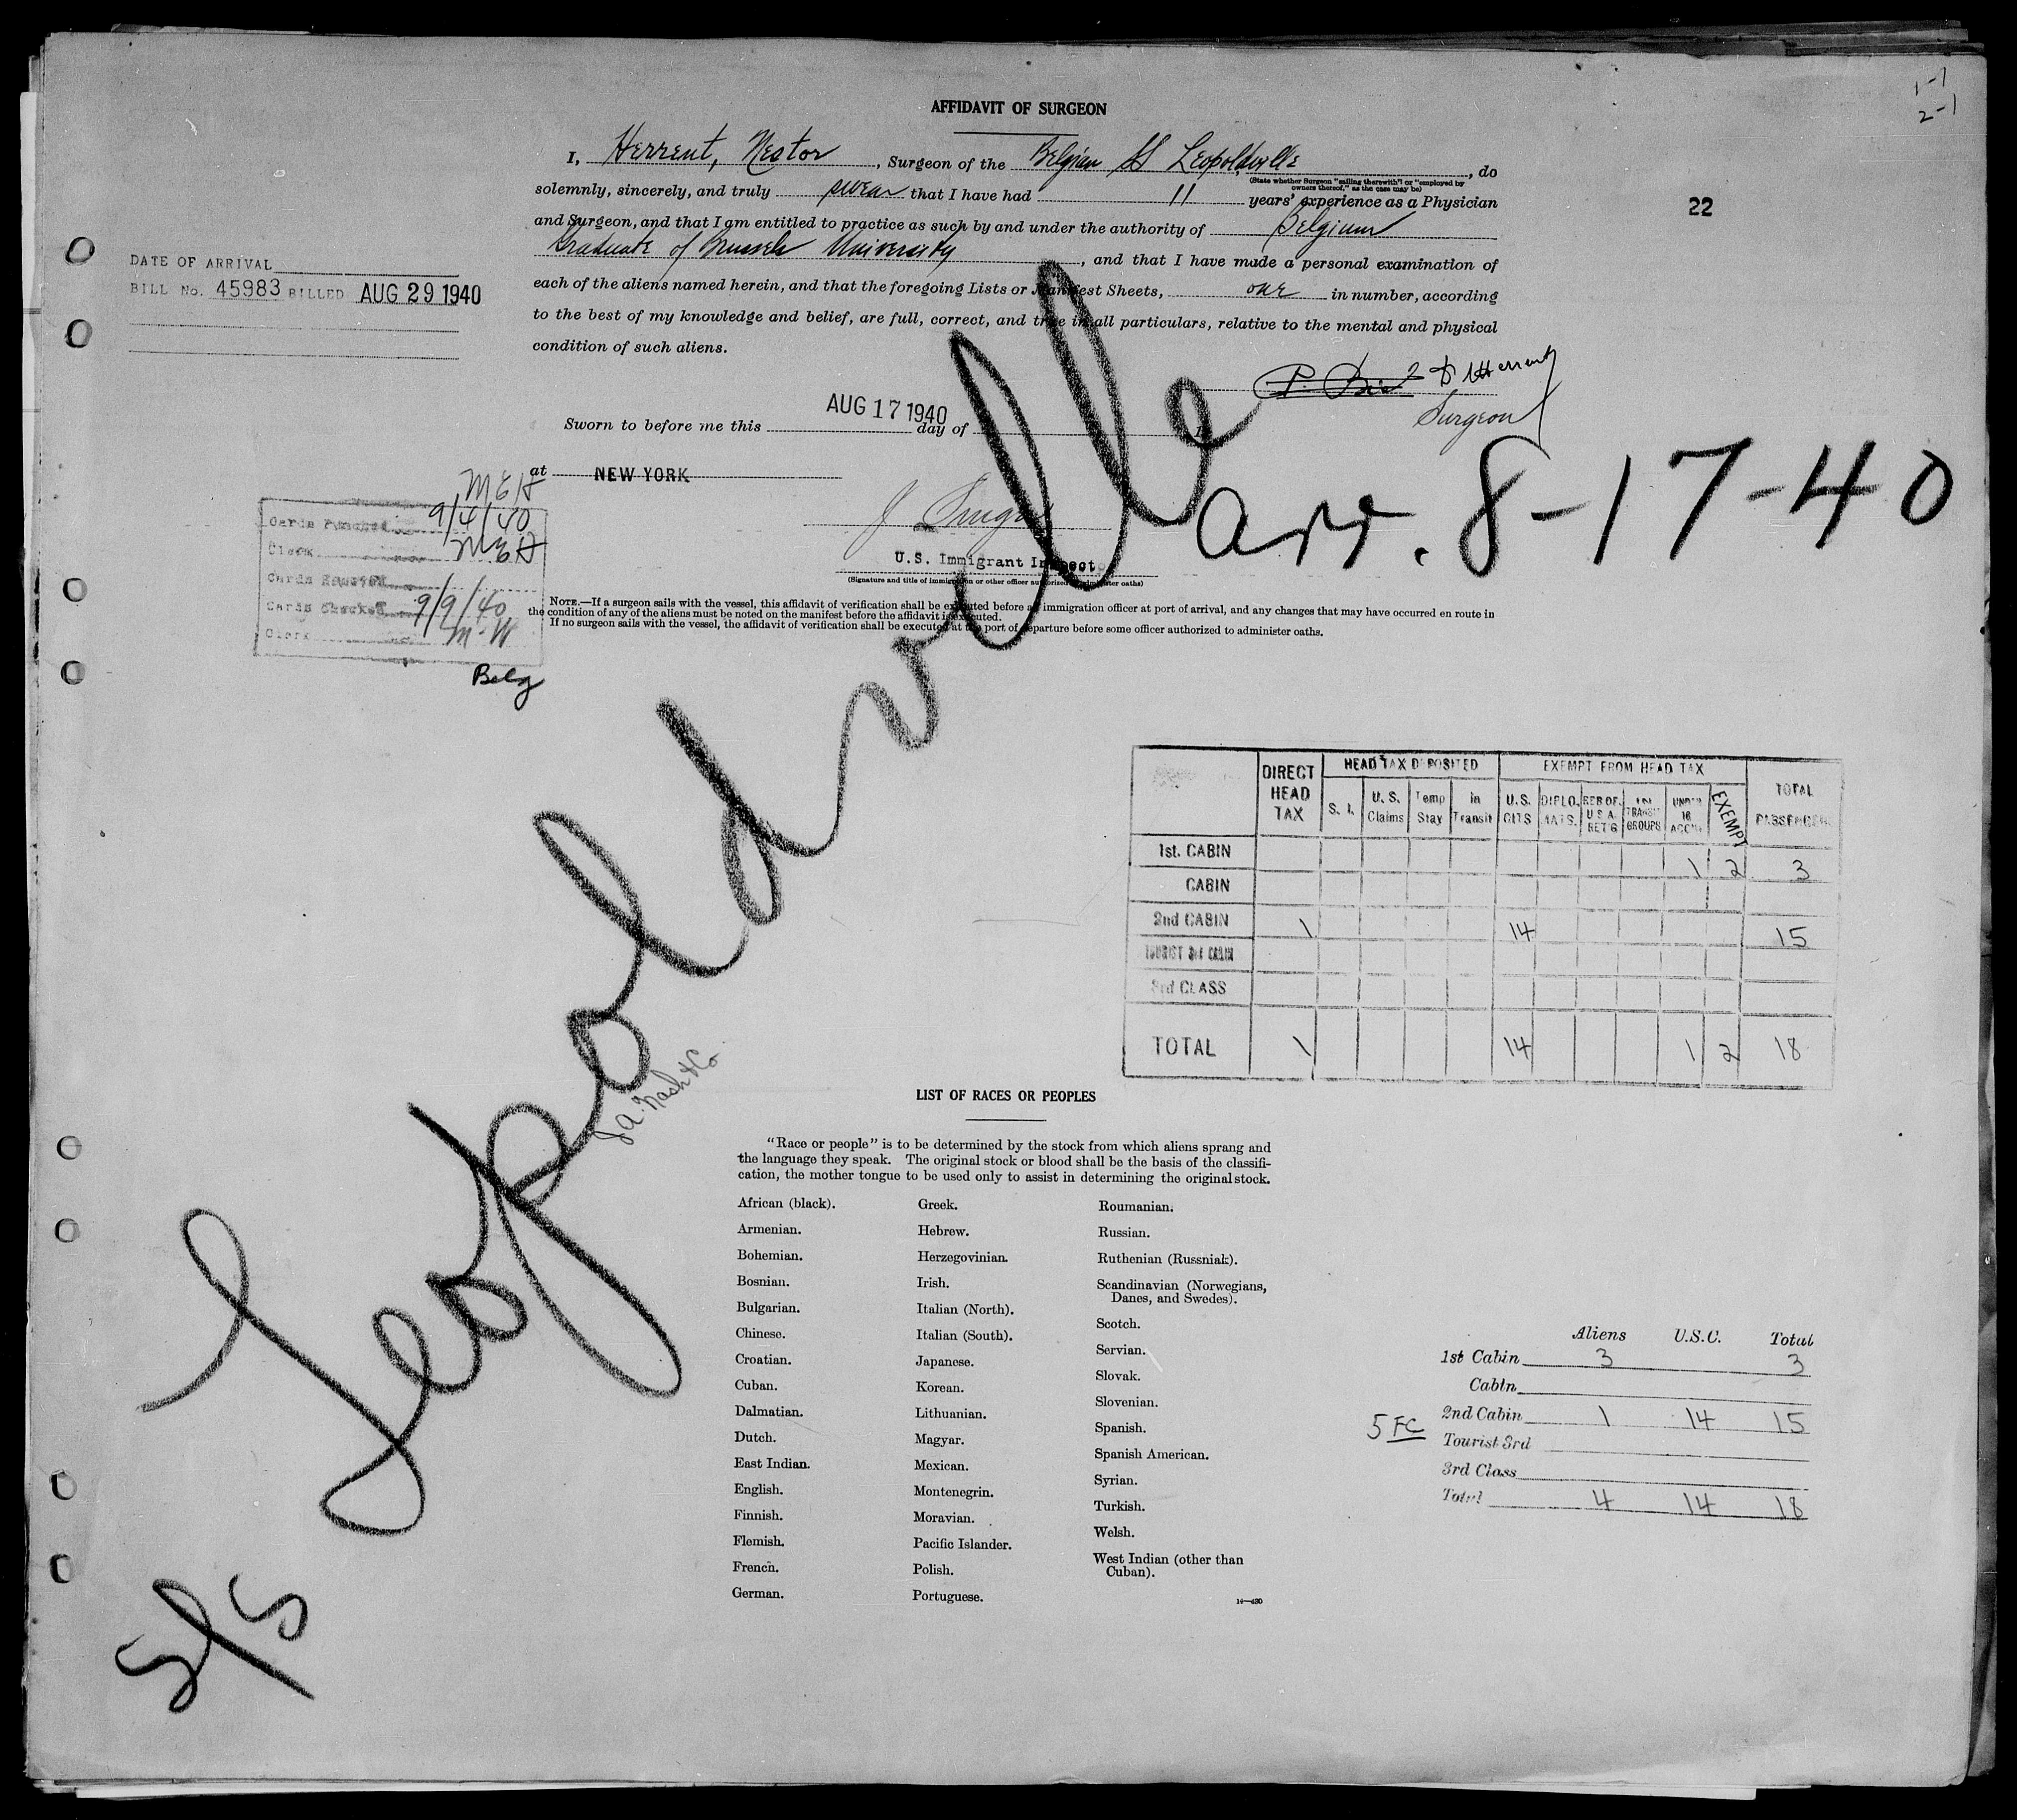 1-1
2-1
AFFIDAVIT OF SURGEON
I, Herrent, Nestor, Surgeon of the Belgian SS Leopoldville, do
(State whether Surgeon "sailing therewith" or "employed by
owners thereof," as the case may be)
solemnly, sincerely, and truly swear that I have had 11 years' experience as a Physician
22
and Surgeon, and that I am entitled to practice as such by and under the authority of Belgium
Graduate of Brussels University, and that I have made a personal examination of
each of the aliens named herein, and that the foregoing Lists or Manifest Sheets, one in number, according
to the best of my knowledge and belief, are full, correct, and true in all particulars, relative to the mental and physical
condition of such aliens.
DATE OF ARRIVAL
BILL No. 45983 BILLED AUG 29 1940
Herrent
Surgeon
AUG 17 1940
Sworn to before me this day of
at NEW YORK
arr. 8-17-40
U.S. Immigrant Inspector
(Signature and title of immigration or other officer authorized to administer oaths)
MEH
Cards Punched 9/4/40
Clerk MEH
Cards
Cards Checked 9/9/40
Clerk M-W
Belg
NOTE.—If a surgeon sails with the vessel, this affidavit of verification shall be executed before an immigration officer at port of arrival, and any changes that may have occurred en route in
the condition of any of the aliens must be noted on the manifest before the affidavit is executed.
If no surgeon sails with the vessel, the affidavit of verification shall be executed at the port of departure before some officer authorized to administer oaths.
S/S Leopoldville
J A. Nash & Co
DIRECT HEAD TAX HEAD TAX DEPOSITED EXEMPT FROM HEAD TAX TOTAL PASSENGERS
S. I. U. S. Claims Temp Stay in Transit U.S. CITS DIPLOMATS. RES OF U S A RET'G TRANSIT GROUPS UNDER 16 ACC'MP EXEMPT
1st. CABIN 1 2 3
CABIN
2nd CABIN 1 14 15
TOURIST 3rd CABIN
3rd CLASS
TOTAL 1 14 1 2 18
LIST OF RACES OR PEOPLES
"Race or people" is to be determined by the stock from which aliens sprang and
the language they speak. The original stock or blood shall be the basis of the classifi-
cation, the mother tongue to be used only to assist in determining the original stock.
African (black).
Armenian.
Bohemian.
Bosnian.
Bulgarian.
Chinese.
Croatian.
Cuban.
Dalmatian.
Dutch.
East Indian.
English.
Finnish.
Flemish.
French.
German.
Greek.
Hebrew.
Herzegovinian.
Irish.
Italian (North).
Italian (South).
Japanese.
Korean.
Lithuanian.
Magyar.
Mexican.
Montenegrin.
Moravian.
Pacific Islander.
Polish.
Portuguese.
Roumanian.
Russian.
Ruthenian (Russniak).
Scandinavian (Norwegians,
Danes, and Swedes).
Scotch.
Servian.
Slovak.
Slovenian.
Spanish.
Spanish American.
Syrian.
Turkish.
Welsh.
West Indian (other than
Cuban).
14—430
Aliens U.S.C. Total
1st Cabin 3 3
Cabin
5 FC 2nd Cabin 1 14 15
Tourist 3rd
3rd Class
Total 4 14 18